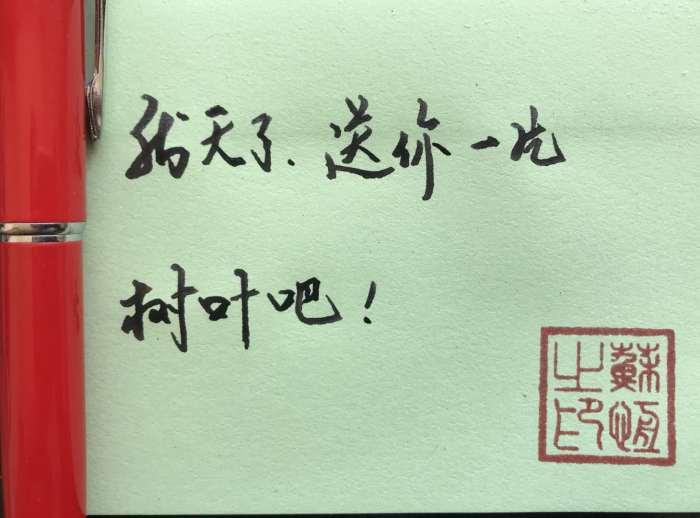 秋天了、送你一片
树叶吧！
蘇恆
之印